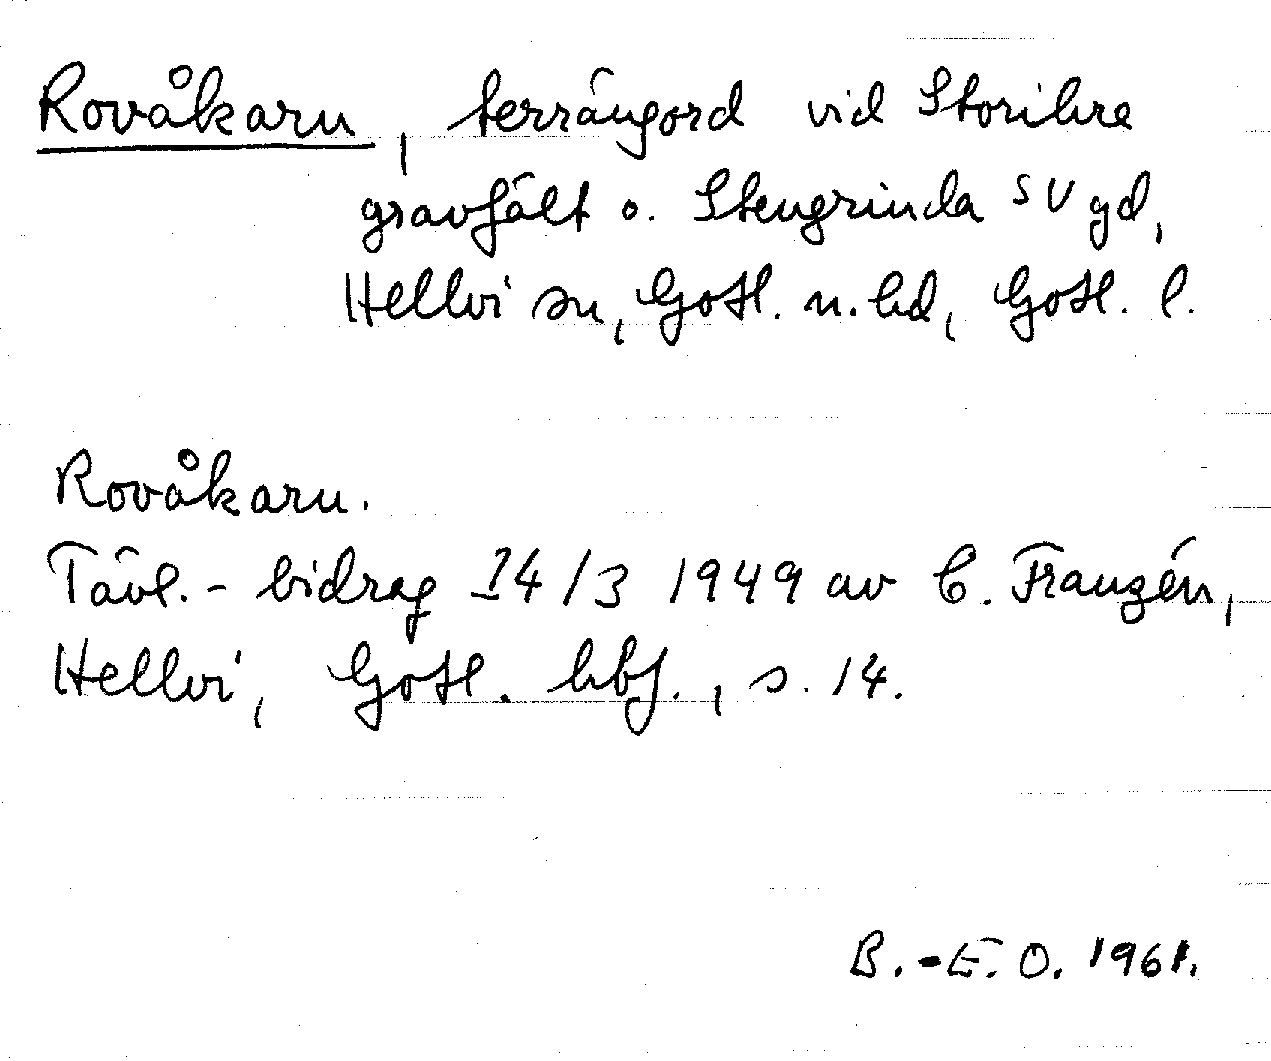 Rovåkaru, terrängord vid Storihre
gravfält o. Stengrinda SV gd,
Hellvi sn, Gotl. n. hd, Gotl. l.
Rovåkaru.
Tävl.-bidrag 14/3 1949 av C. Franzén,
Hellvi, Gotl. hbf., s. 14.
B.-E. O. 1961.